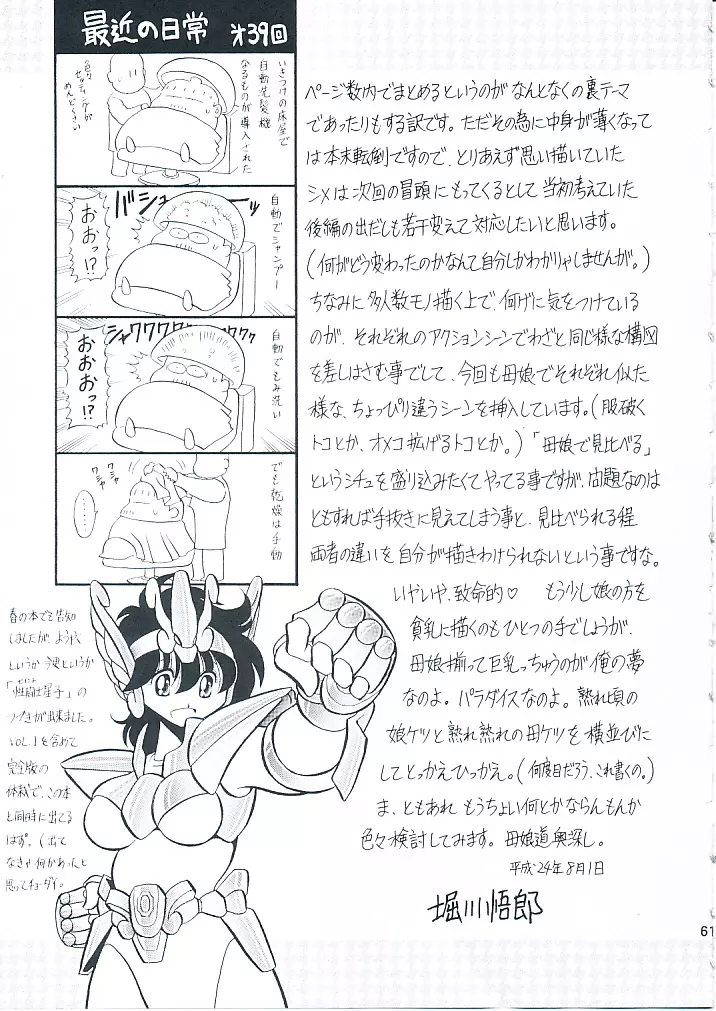 最近の日常 オ39回
いきつけの床屋で
自動洗髪機
なるものが導入された
色々
セッティングが
めんどくさい
自動でシャンプー
バシューーーッ
おおっ!?
自動でもみ洗い
シャクワクワクワクワク
おおおっ!?
でも乾燥は手動
ワシャ
ワシャ
……
ページ数内でまとめるというのがなんとなくの裏テーマ
であったりもする訳です。ただその為に中身が薄くなって
は本末転倒ですので、とりあえず思い描いていた
シメは次回の冒頭にもってくるとして当初考えていた
後編の出だしも若干変えて対応したいと思います。
(何がどう変わったのかなんて自分しかわかりゃしませんが。)
ちなみに多人数モノ描く上で、何げに気をつけている
のが、それぞれのアクションシーンでわざと同じ様な構図
を差しはさむ事でして、今回も母娘でそれぞれ似た
様な、ちょっぴり違うシーンを挿入しています。(服破く
トコとか、オメコ拡げるトコとか。)「母娘で見比べる」
というシチュを盛り込みたくてやってる事ですが、問題なのは
ともすれば手抜きに見えてしまう事と、見比べられる程
両者の違いを自分が描きわけられないという事ですな。
いやいや、致命的♡ もう少し娘の方を
貧乳に描くのもひとつの手でしょうが、
母娘揃って巨乳っちゅうのが俺の夢
なのよ。パラダイスなのよ。熟れ頃の
娘ケツと熟れ熟れの母ケツを横並びに
してとっかえひっかえ。(何度目だろう、これ書くの。)
ま、ともあれもうちょい何とかならんもんか
色々検討してみます。母娘道奥深し。
平成24年8月1日
堀川悟郎
春の本でも告知
しましたが、ようやく
というか今更というか
「性闘士星子」の
つづきが出来ました。
VOL.1を含めて
完全版の
体裁で、この本
と同時に出てる
はず。(出て
なきゃ何かあったと
思ってチョーダイ。
61